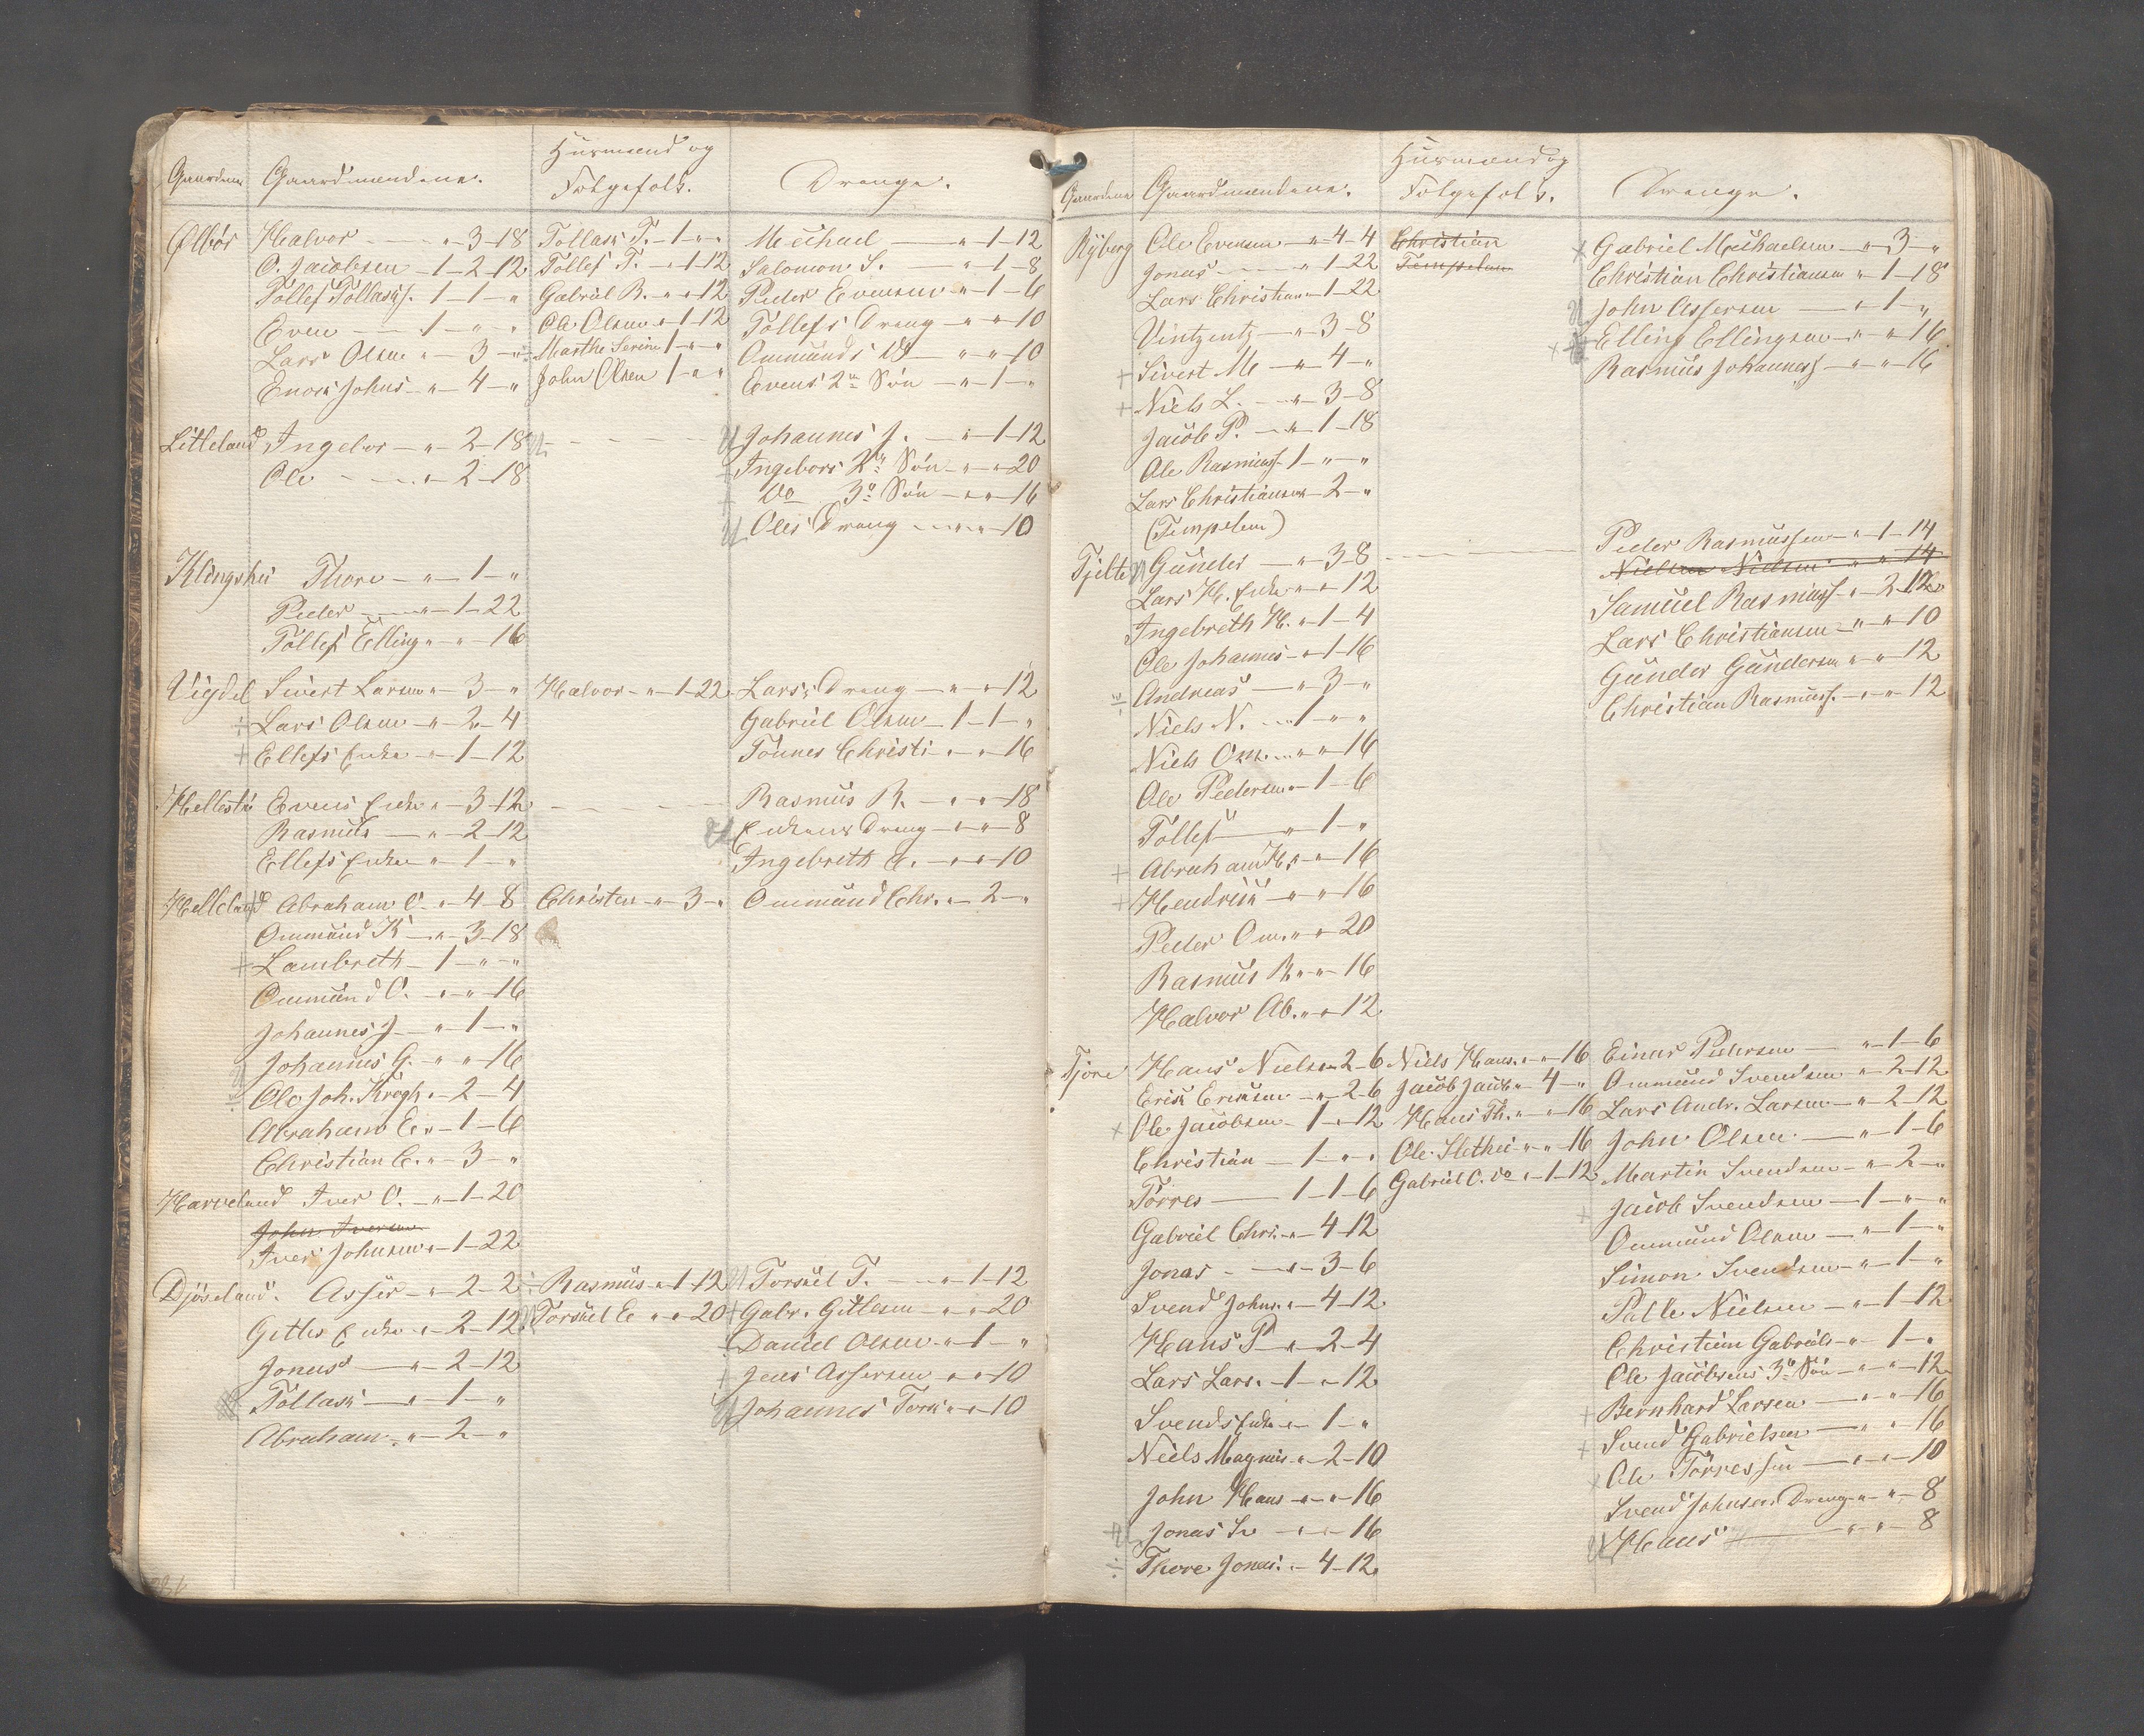 Gaardene Gaardmændene. Huusmænd og Følgefolk. Drenge.
Ølbør Halvor — " — 3 — 18 Tollak T. — 1 — " — " Michael — " — 1 — 12
O. Jacobsen — 1 — 2 — 12 Tollef T. — " — 1 — 12 Salomon S. — " — 1 — 8
Tollef Tollaks. 1 — 1 — " Gabriel R. — " — " 12 Peder Evensen — " — 1 — 6
Even — 1 — " — " Ole Olsen — " 1 — 12 Tollefs Dreng — " — " 10
Lars Olsen — " — 3 — " Marthe Serine 1 — " — " Ommunds Do — " — " — 10
Enok Johns. — " — 4 — " John Olsen 1 — " — " Evens 2n Søn — " — 1 — "
Litleland Ingebor — " — 2 — 18 Johannes J. — " — 1 — 12
Ole — " — 2 — 18 Ingebors 2n Søn — " — " 20
Do 3e Søn — " — " 16
Oles Dreng — " — " 10
Klingshei Thore — " — 1 — "
Peder — " — 1 — 22
Tollef Elling " — " — 16
Vigdel Sivert Larsen " — 3 — " Halvor — " — 1 — 22 Lars's Dreng — " — " 12
÷ Lars Olsen — " — 2 — 4 Gabriel Olsen — 1 — 1 — "
+ Ellefs Enke — " — 1 — 12 Tønnes Christi — " — " 16
Hellestø Evens Enke " — 3 — 12 Rasmus R. — " — " — 18
Rasmus — " — 2 — 12 Enkens Dreng — " — " — 8
Ellefs Enke " — 1 — " Ingebreth E. — " — " 10
Helleland Abraham O. — " 4 — 8 Christen — " — 3 — " Ommund Chr. " — 2 — "
Ommund K — " — 3 — 18
+ Lambreth — 1 — " — "
Ommund O. — " — " — 16
Johannes J — " — 1 — "
Johannes G. — " " — 16
Ole Joh. Krogh " — 2 — 4
Abraham E. " — 1 — 6
Christian C. " — 3 — "
Harveland Iver O. — " — 1 — 20
John Iversen
Iver Johnsen " — 1 — 22
Djøseland. Asser — " — 2 — 2 Rasmus — " 1 — 12 Torkiel T. — " — 1 — 12
Gitles Enke — " — 2 — 12 Torkiel E " — " 20 + Gabr. Gitlesen — " — " 20
Jonas — " — 2 — 12 Daniel Olsen — " — 1 — "
Tollak — " — 1 — " Jens Assersen — " — " 10
Abraham — " — 2 — " Johannes Tork " — " 10
Gaardene Gaardmændene. Huusmænd og Følgefolk. Drenge.
Ryberg Ole Evensen — " 4 — 4 Christian × Gabriel Michaelsen — " 3 — "
Jonas — " 1 — 22 Tempelen Christian Christiansen " 1 — 18
Lars Christian " 1 — 22 John Assersen — " — 1 — "
Vintzentz — " — 3 — 8 Elling Ellingsen — " — " 16
+ Sivert M — " 4 — " Rasmus Johanness — " — " — 16
+ Niels L. — " — 3 — 8
Jacob P. — " 1 — 18
Ole Rasmuss. 1 — " — "
Lars Christiansen — 2 — "
(Tempelen) Peder Rasmussen — " 1 — 14
Tjelte Gunder — " — 3 — 8 Nielsen Nielsen " " 14
Lars H. Enke " — " 12 Samuel Rasmuss. " — 2 — 12
Ingebreth H. " — 1 — 4 Lars Christiansen — " — " 10
Ole Johannes — " 1 — 16 Gunder Gundersen " — " 12
Andreas — " 3 — " Christian Rasmuss. — " — " 12
Niels N. — 1 — " — "
Niels Om. — " — " — 16
Ole Pedersen " — 1 — 6
Tollef — " 1 — "
+ Abraham H. " " — 16
+ Hendrik — " — " 16
Peder Om. " — " 20
Rasmus R. " — " — 16
Halvor Ab. " — " 12
Tjore Hans Nielsen 2 — 6 Niels Hans. " — " 16 Einar Pedersen — " — 1 — 6
Erik Eriksen — " — 2 — 6 Jacob Jacob " 4 — " Ommund Svendsen — " 2 — 12
× Ole Jacobsen — 1 — " 12 Hans Th. " — " 16 Lars Andr. Larsen — " 2 — 12
Christian — 1 — " — " Ole Slethei " — " 16 John Olsen — " 1 — 6
Torres — 1 — 1 — 6 Gabriel O. do " — 1 — 12 Martin Svendsen — " 2 — "
Gabriel Chr. " — 4 — 12 + Jacob Svendsen — 1 — " — "
Jonas — " — 3 — 6 Ommund Olsen — " — 1 — "
Svend Johns. " — 4 — 12 Simon Svendsen — " — 1 — "
Hans P — " — 2 — 4 Palle Nielsen — " — 1 — 12
Lars Lars. — 1 — " — 12 Christian Gabriels — " 1 — "
Svends Enke " — 1 — " Ole Jacobsens 3e Søn — " — " — 12
Niels Magnus. " — 2 — 10 + Bernhard Larsen — " — " — 16
John Hans — " — " — 16 + Svend Gabrielsen — " — " 16
Jonas Sv — " — " — 16 Ole Torressen — " — " — 10
÷ Thore Jonas. " — 4 — 12 Svend Johnsens Dreng — " — " — 8
Hans — " — " — 8